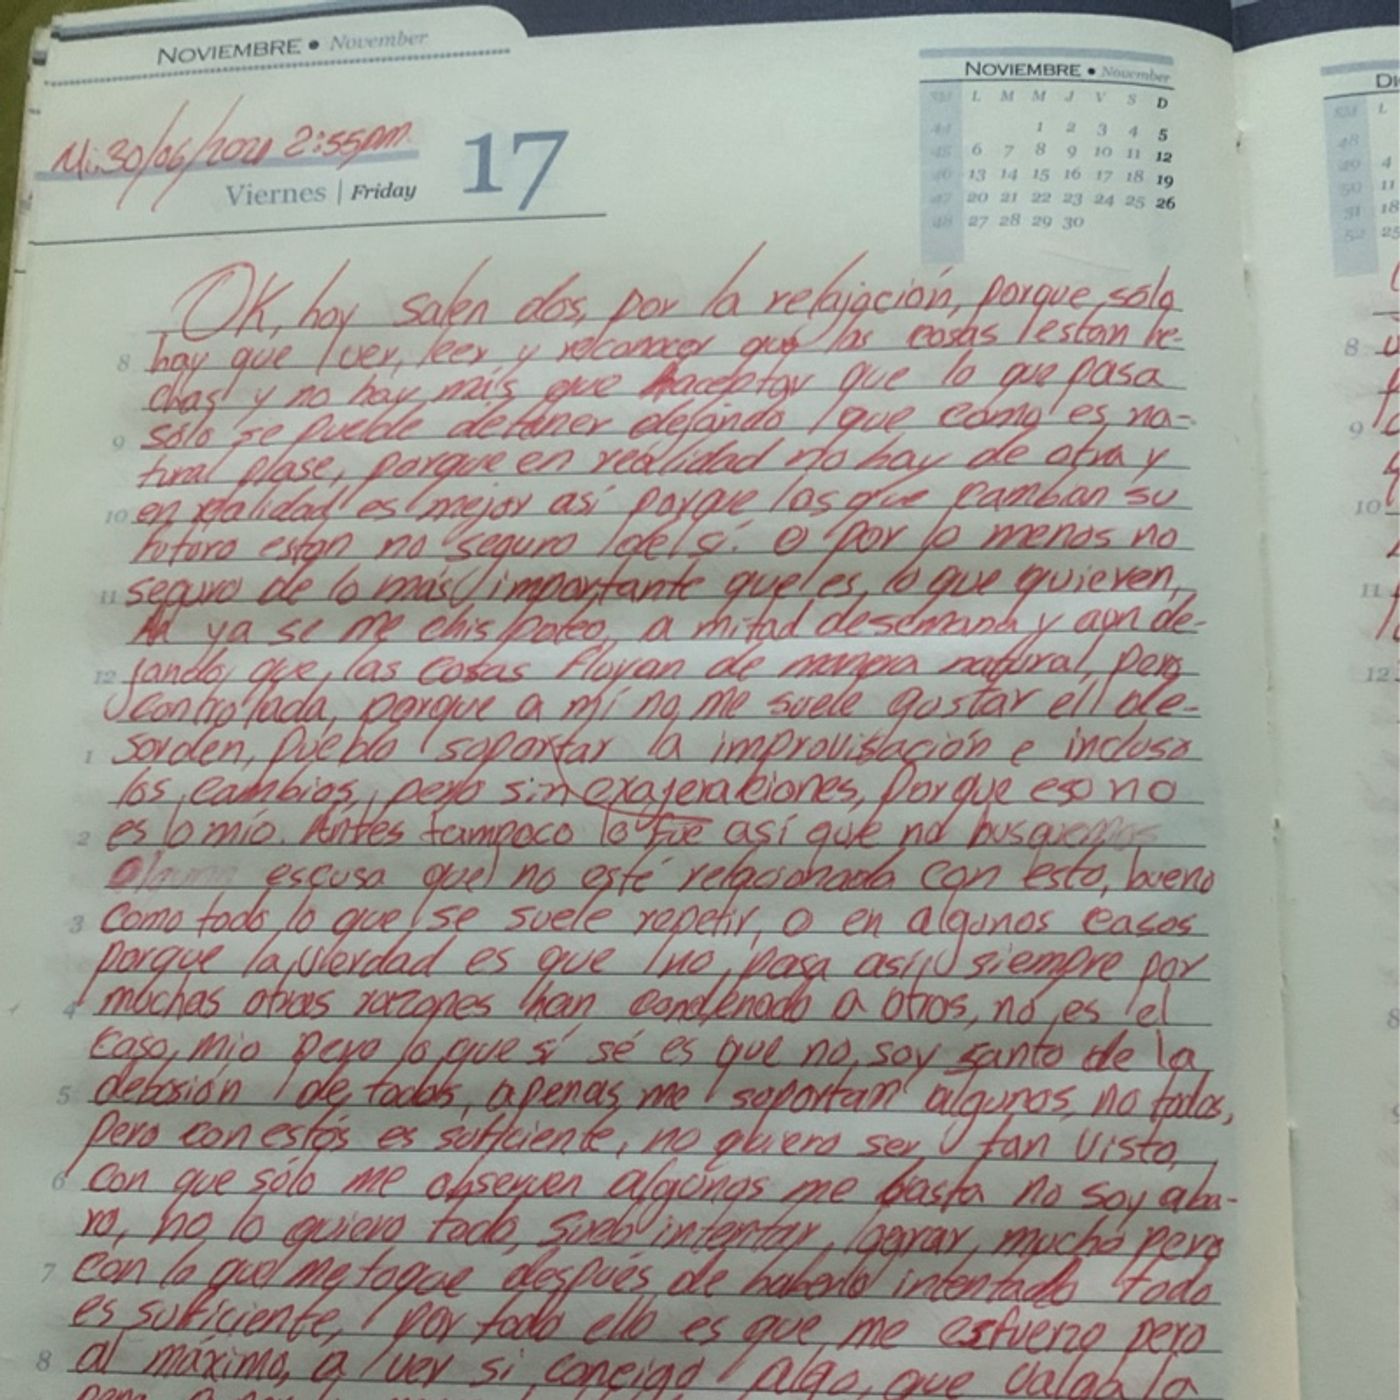 NOVIEMBRE • November
Mi. 30/06/2021 2:55pm.
Viernes | Friday 17
NOVIEMBRE • November
SM L M M J V S D
44 1 2 3 4 5
45 6 7 8 9 10 11 12
46 13 14 15 16 17 18 19
47 20 21 22 23 24 25 26
48 27 28 29 30
OK, hoy salen dos, por la relajación, porque sólo
8 hay que ver, leer y reconocer que las cosas estan he-
chas y no hay más que haceptar que lo que pasa
9 sólo se puede detener dejando que como es na-
tural pase, porque en realidad no hay de otra y
10 en realidad es mejor así porque los que cambian su
futuro estan no seguro del sí. O por lo menos no
11 seguro de lo más importante que es, lo que quieren,
ya se me chispoteo, a mitad de semana y aun de-
12 jando que las cosas fluyan de manera natural, pero
controlada, porque a mí no me suele gustar el de-
1 sorden, puedo soportar la improvisación e incluso
los cambios, pero sin exajeraciones, porque eso no
2 es lo mío. Antes tampoco lo fue así que no busquemos
alguna escusa que no esté relacionada con esto, bueno
3 como todo lo que se suele repetir, o en algunos casos
porque la verdad es que no pasa así siempre por
4 muchas otras razones han condenado a otros, no es el
caso mio pero lo que sí sé es que no soy santo de la
5 debosión de todos, apenas me soportan algunos, no todos,
pero con estos es suficiente, no quiero ser tan visto,
6 con que sólo me observen algunos me basta no soy aba-
ro, no lo quiero todo, suelo intentar lograr mucho pero
7 con lo que me toque después de haberlo intentado todo
es suficiente, por todo ello es que me esfuerzo pero
8 al máximo, a ver si concigo algo que valga la
pena
DI
SM L
48
49 4
50 11
51 18
52 25
8
9
10
11
12